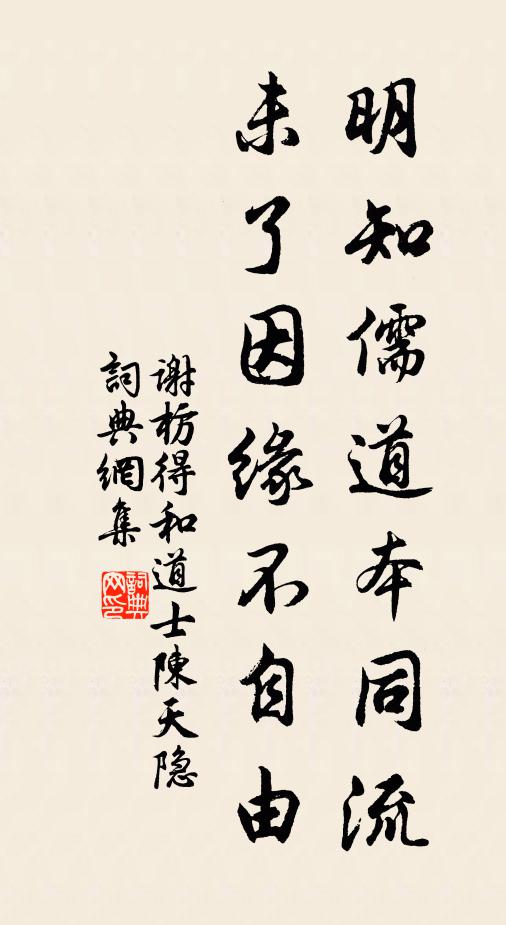 明知儒道本同流
未了因缘不自由
谢枋得和道士陳天隐
詞典網集
詞典网印